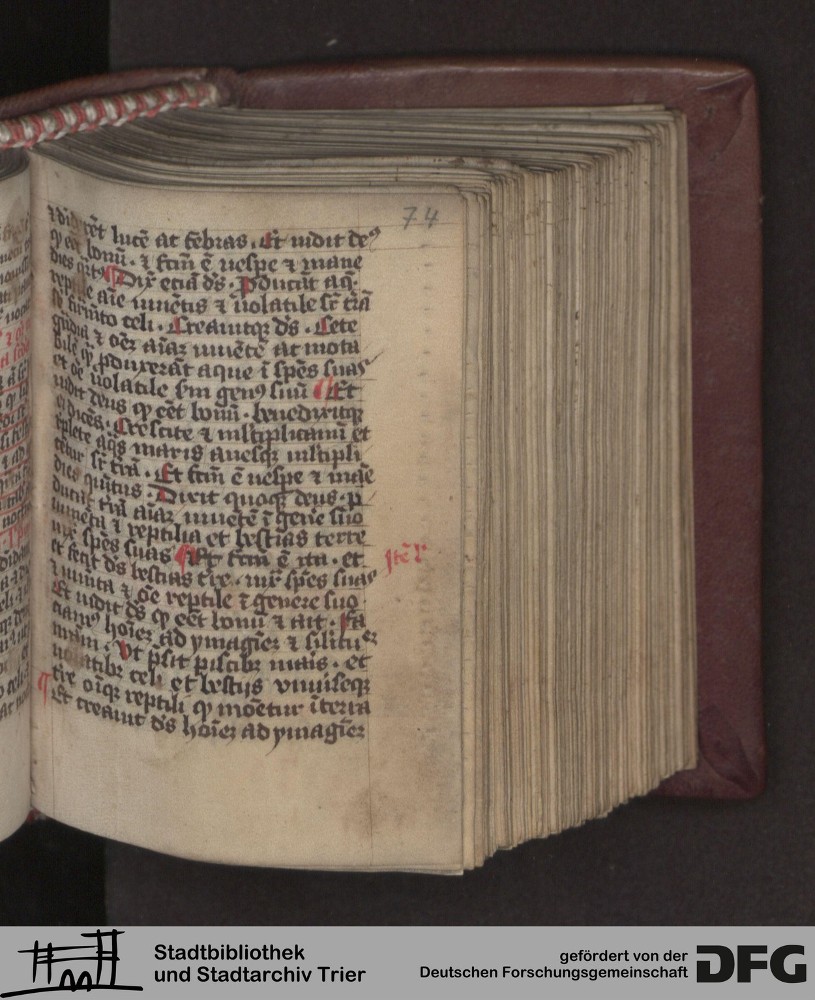 74
⁊ diuid̄et lucē ac tēbras. Et uidit deꝰ
ꝙ eēt bonū. ⁊ fcm̄ ē uespe ⁊ mane
dies q̄rtꝰ ¶ Dix̄ eciā ds̄. Pducūt aq̄
reptile aīe uiuētis ⁊ uolatile sr̄ trā
sb̄ firmāto celi. Creauitqꝫ ds̄. Cete
gūdia ⁊ oēꝫ aīaꝫ uiuētē at mota
bilē ꝙ ꝓduxerāt aque ī spēs suas
et oē uolatile sm̄ genꝰ suū ¶ Et
uidit deus ꝙ eēt bonū. benedixitqꝫ
eis dicēs. Crescite ⁊ ml̄tiplicamī et
replete aq̄s maris auesqꝫ ml̄tipli
cētur sr̄ trā. Et fcm̄ ē uespe ⁊ māe
dies quītus. Dixit quoqꝫ deus. ꝓ
ducat trā aīaꝫ uiuētē ī genē suo
iumēta ⁊ reptilia et bestias terre
iux̄ spēs suas ¶ Et fcm̄ ē ita. et
et fecit ds̄ bestias tr̄e. iux̄ spēs suas
⁊ iumta ⁊ oē reptile ī genere suo
Et uidit ds̄ ꝙ eēt bonū ⁊ ait. Fa
ciamꝰ hoīeꝫ ad ymagīeꝫ ⁊ silitu
nr̄am. Vt p̄sit piscibꝫ maīs. et
uolatibꝫ celi et bestijs vniuīseqꝫ
tr̄e oīqꝫ reptili ꝙ moētur ī terra
¶ Et creauit ds̄ hoīeꝫ ad ymagīeꝫ
Stadtbibliothek
und Stadtarchiv Trier
gefördert von der
Deutschen Forschungsgemeinschaft
DFG